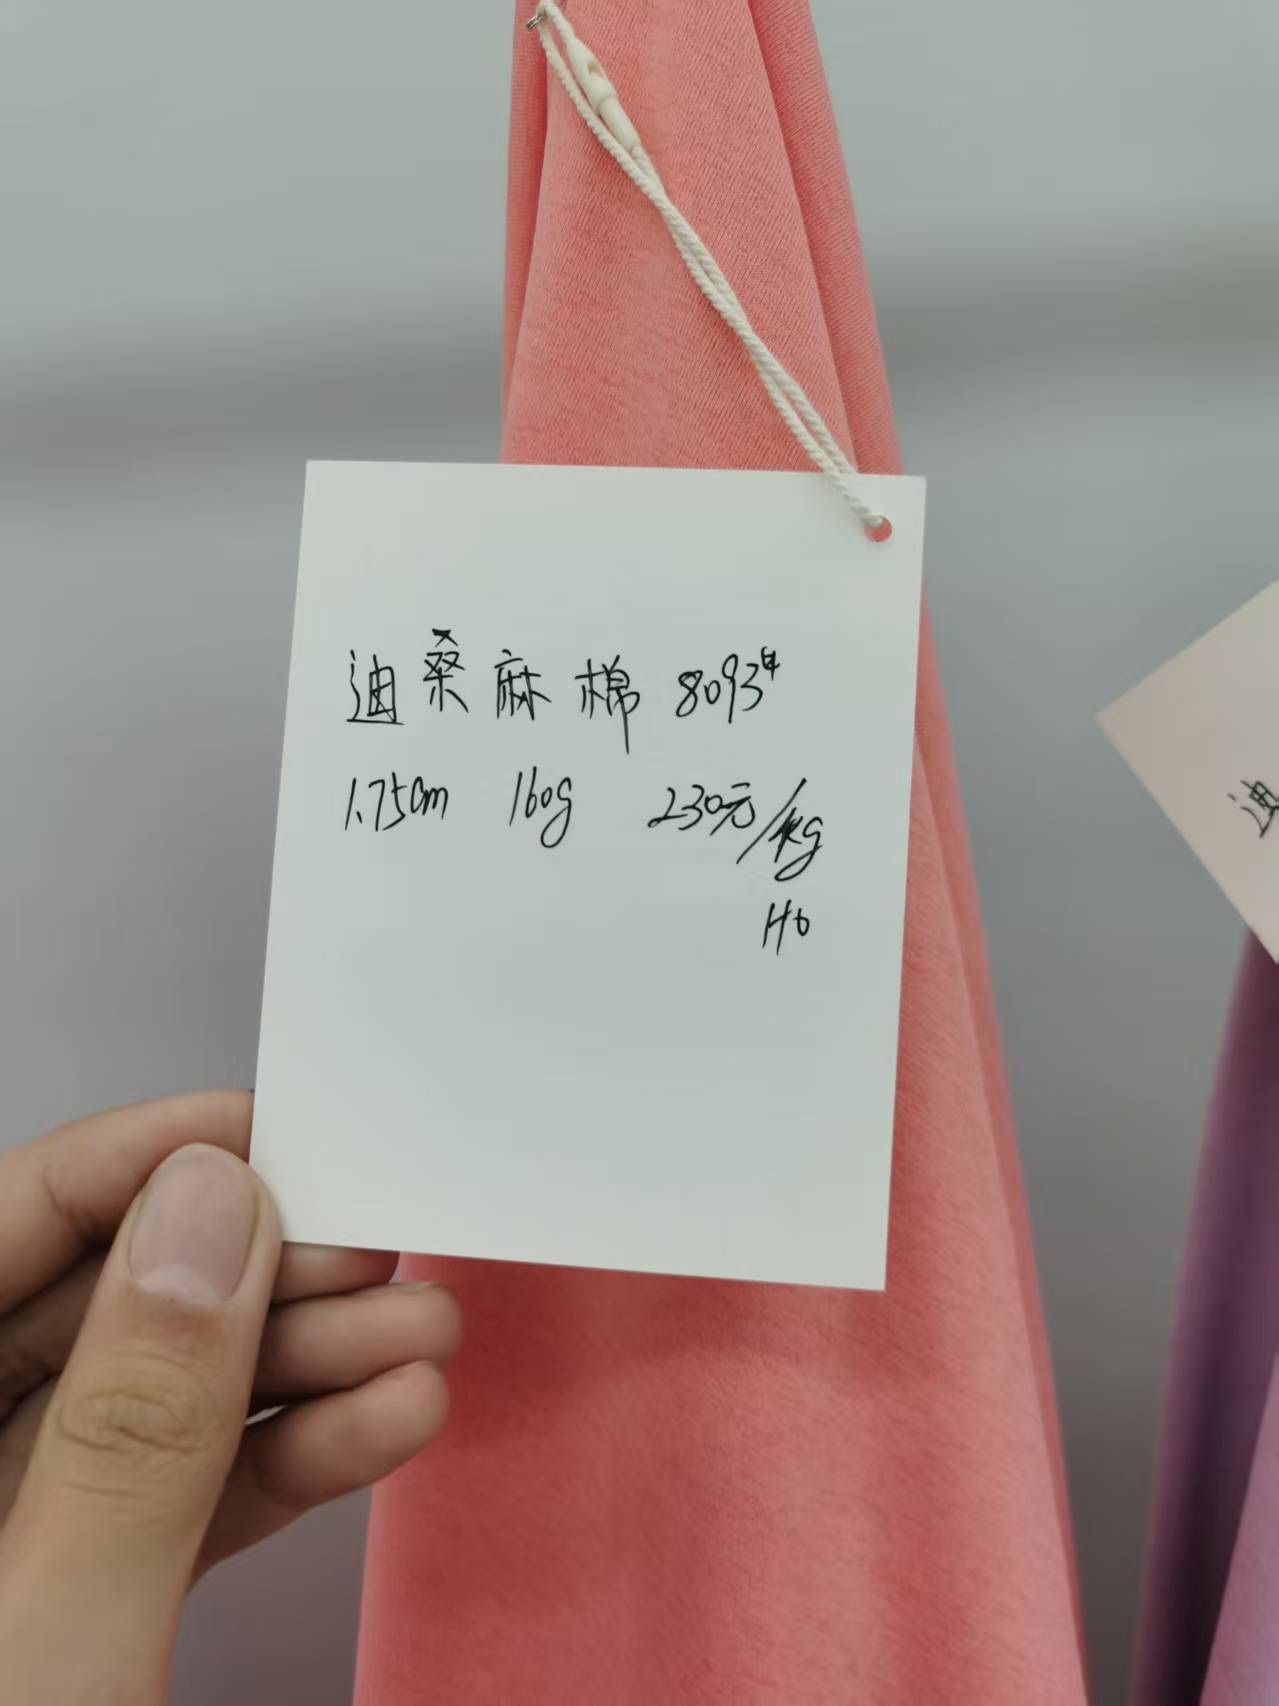 迪桑麻棉 8093#
1.75cm 160g 230元/kg
H6
迪